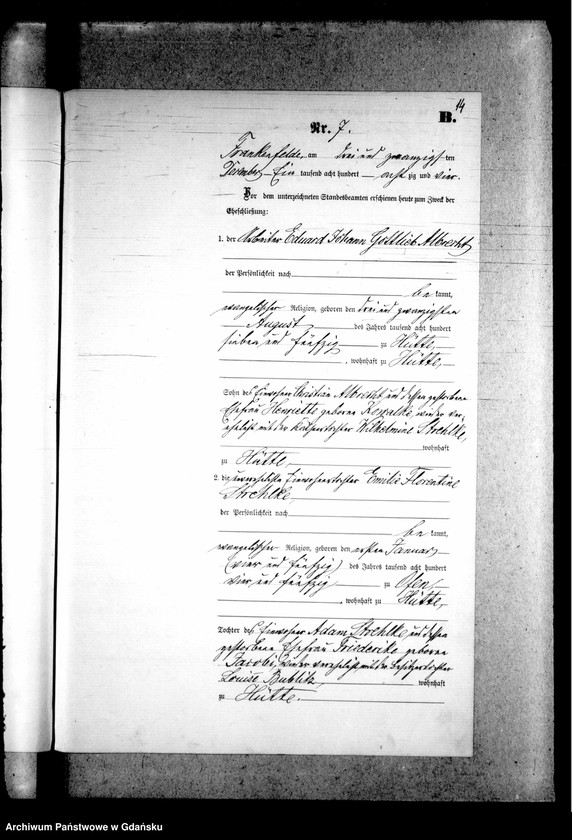 14
B.
Nr. 7.
Frankenfelde, am drei und zwanzigsten
Dezember Ein tausend acht hundert acht zig und vier.
Vor dem unterzeichneten Standesbeamten erschienen heute zum Zweck der
Eheschließung:
1. der Arbeiter Eduard Johann Gottlieb Albrecht,
der Persönlichkeit nach
be kannt,
evangelischer Religion, geboren den drei und zwanzigsten
August des Jahres tausend acht hundert
sieben und fünfzig zu Hütte,
, wohnhaft zu Hütte,
Sohn des Einwohners Christian Albrecht und dessen gestorbene
Ehefrau Henriette geborene wieder ver-
ehelicht mit der Wilhelmine Strehlke,
wohnhaft
zu Hütte,
2. die unverehelichte Einwohnertochter Emilie Florentine
Strehlke,
der Persönlichkeit nach
be kannt,
evangelischer Religion, geboren den ersten Januar
(vier und fünfzig) des Jahres tausend acht hundert
vier und fünfzig zu Ofen,
, wohnhaft zu Hütte,
Tochter des Einwohners Adam Strehlke, und dessen
gestorbene Ehefrau Friederike geborene
Jacobi, wieder verehelicht mit der Besitzertochter
Louise Bublitz, wohnhaft
zu Hütte.
Archiwum Państwowe w Gdańsku